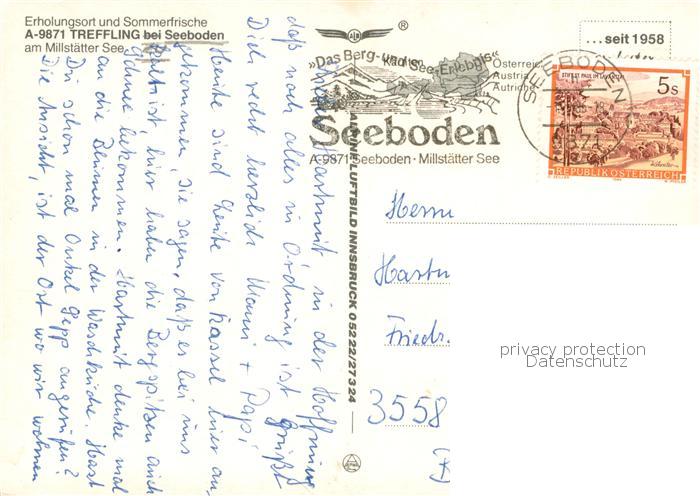 Erholungsort und Sommerfrische
A-9871 TREFFLING bei Seeboden
am Millstätter See
®
...seit 1958
»Das Berg- und See-Erlebnis«
Kärnten
Österreich
Austria
Autriche
Seeboden
A-9871 Seeboden · Millstätter See
SEEBODEN
9871
STIFT ST. PAUL IM LAVANTTAL
5s
REPUBLIK ÖSTERREICH
ALPINE LUFTBILD INNSBRUCK 05222/27324
Lieber Hartmut, in der Hoffnung
daß noch alles in Ordnung ist grüßt
Dich recht herzlich Mami + Papi
Heute sind Leute von Kassel hier an-
gekommen, sie sagen, daß es bei uns
kalt ist, hier haben die Bergspitzen auch
Schnee bekommen. Hartmut denke mal
an die Blumen in der Waschküche. Hast
Du schon mal Onkel Sepp angerufen?
Die Ansicht, ist der Ort wo wir wohnen
Herrn
Hartm
Friedr.
3558
privacy protection
Datenschutz